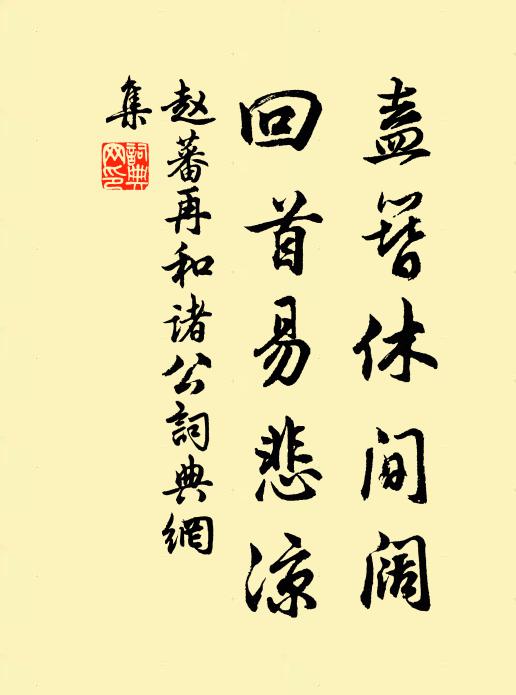 盍簪休间阔
回首易悲凉
赵蕃再和诸公詞典網
集
詞典網印